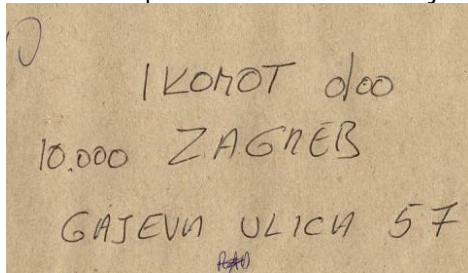 IKOMOT doo
10.000 ZAGREB
GAJEVA ULICA 57